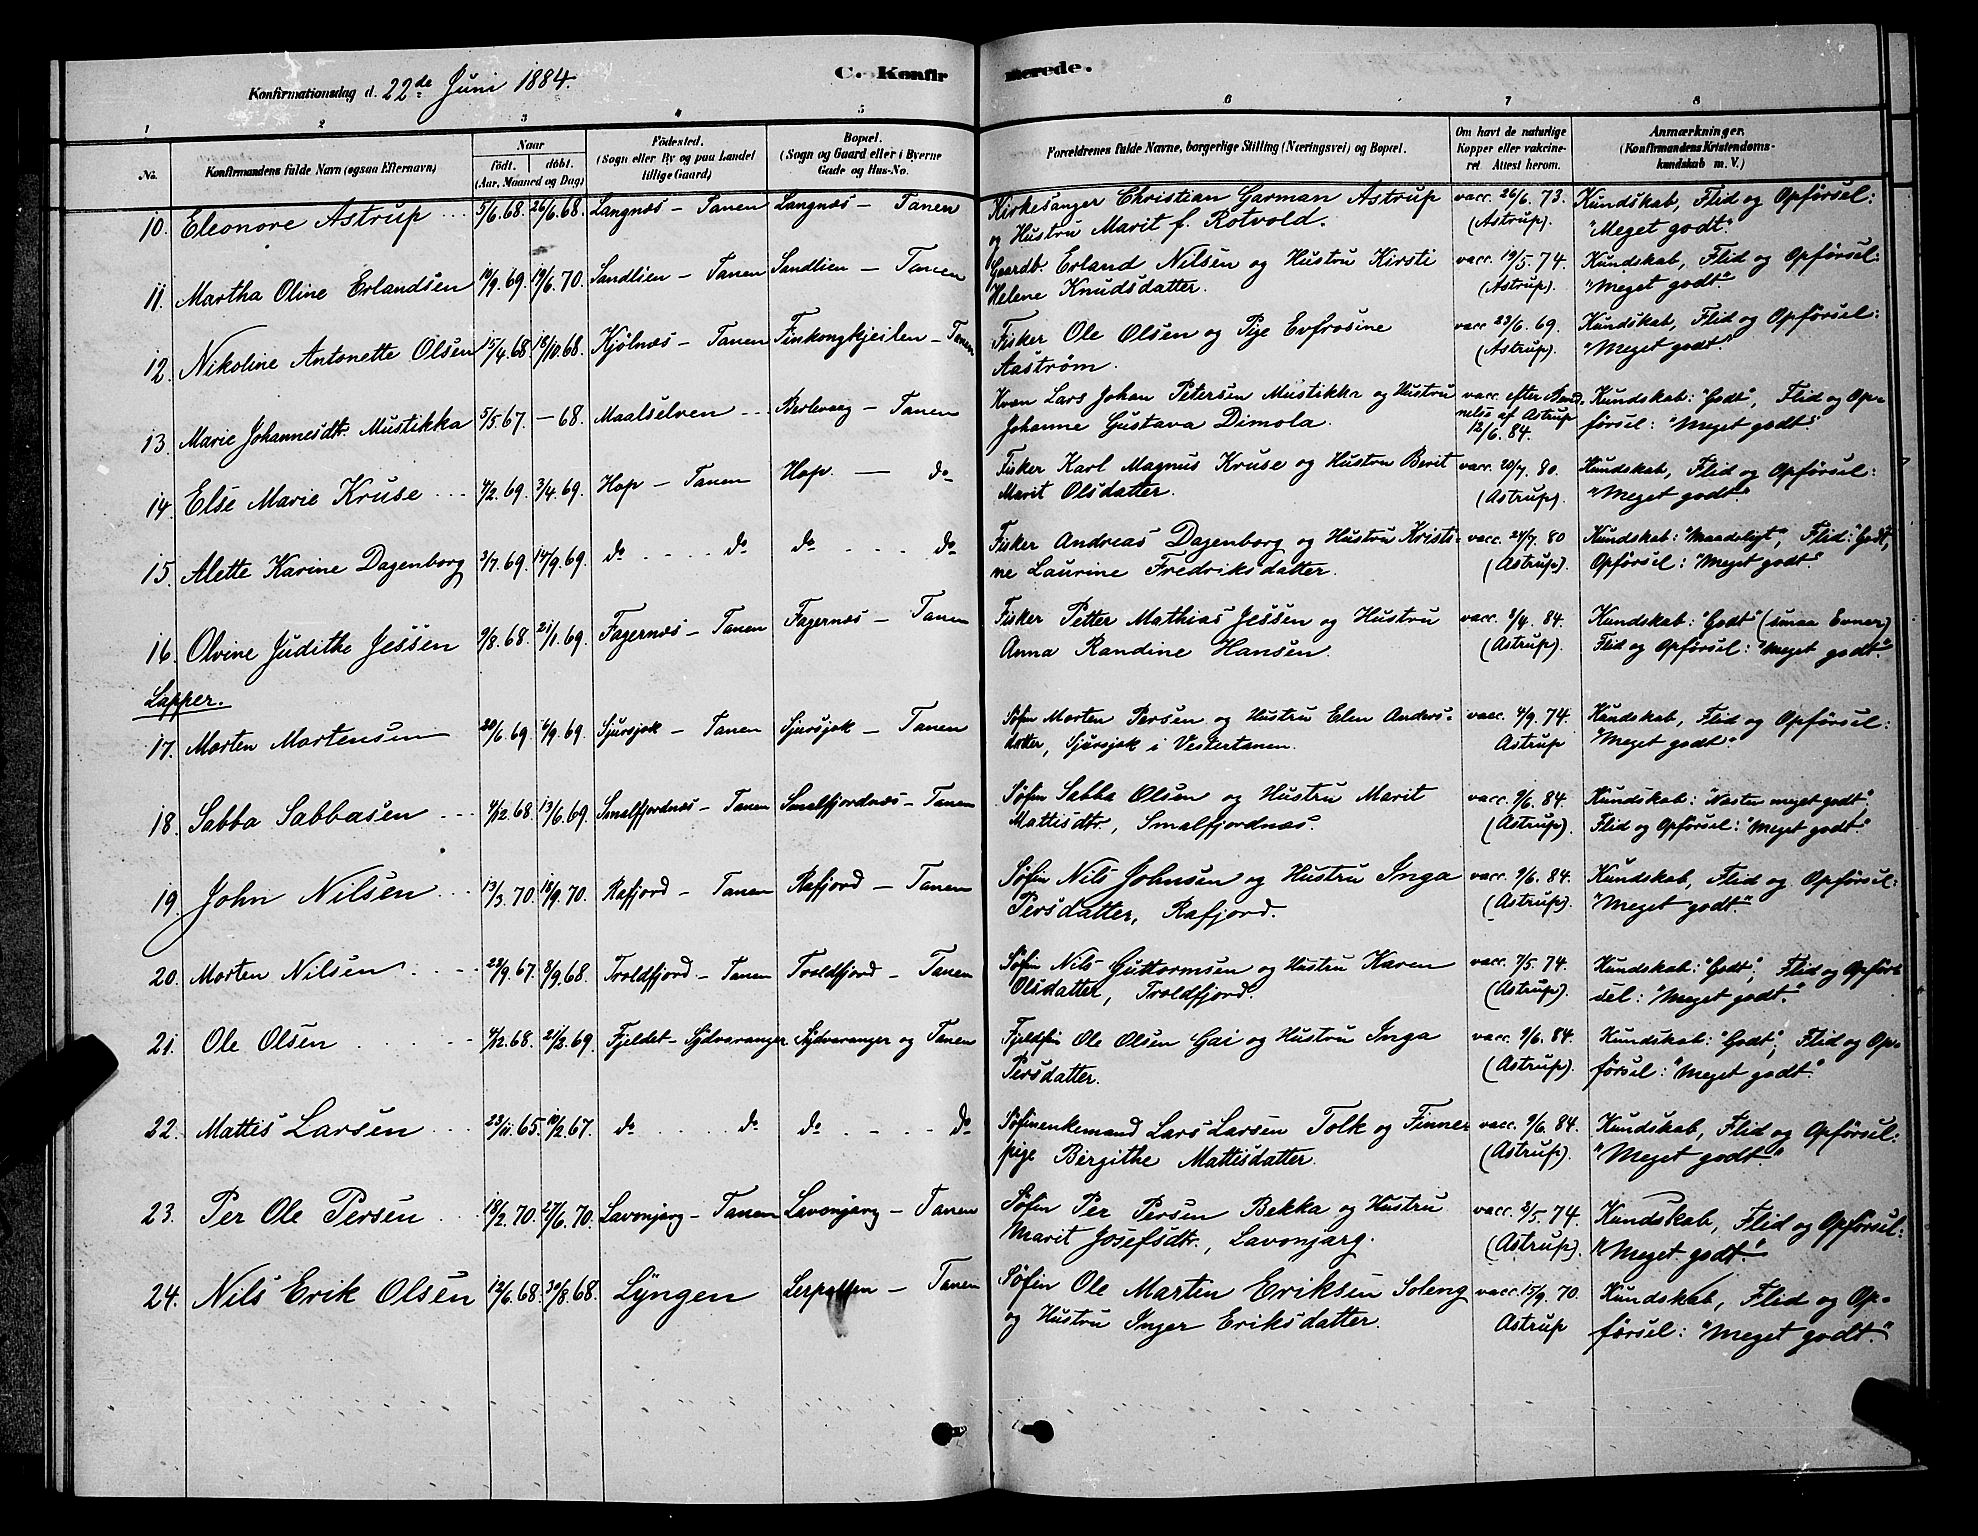 C. Konfirmerede.
Konfirmationsdag d. 22de Juni 1884.
1 2 3 4 5 6 7 8
No. Konfirmandens fulde Navn (ogsaa Efternavn) Naar født. døbt. (Aar, Maaned og Dag) Fødested. (Sogn eller By og paa Landet tillige Gaard) Bopæl. (Sogn og Gaard eller i Byerne Gade og Hus-No. Forældrenes fulde Navne, borgerlige Stilling (Næringsvei) og Bopæl. Om havt de naturlige Kopper eller vakcineret. Attest herom. Anmærkninger. (Konfirmandens Kristendomskundskab m. V.)
10. Eleonore Astrup 5/6 68. 26/6 68. Langnæs – Tanen Langnæs – Tanen Kirkesanger Christian Garman Astrup vacc. 26/6. 73. Kundskab, Flid og Opførsel:
og Hustru Marit f. Rotvold. (Astrup). "Meget godt."
11. Martha Oline Erlandsen 10/9 69. 19/6 70. Sandlien – Tanen Sandlien – Tanen Gaardb. Erland Nilsen og Hustru Kirsti vacc. 19/5. 74. Kundskab, Flid og Opførsel:
Helene Knudsdatter. (Astrup). "Meget godt."
12. Nikoline Antonette Olsen 15/4 68. 18/10 68. Kjølnæs – Tanen Finkongkjeilen – Tanen Fisker Ole Olsen og Pige Evfrosine vacc. 23/6. 69. Kundskab, Flid og Opførsel:
Aaström. (Astrup). "Meget godt."
13. Marie Johannesdtr. Mustikka 5/5 67. – 68. Maalselven Berlevaag – Tanen Kvæn Lars Johan Petersen Mustikka og Hustru vacc. efter Kundskab: "Godt", Flid og Op-
Johanne Gustava Dimola. af Astrup 12/6. 84. førsel: "Meget godt."
14. Else Marie Kruse 4/2 69. 3/4 69. Hop – Tanen Hop – do Fisker Karl Magnus Kruse og Hustru Berit vacc. 20/7. 80. Kundskab, Flid og Opførsel:
Marit Olsdatter. (Astrup). "Meget godt."
15. Alette Karine Dagenborg 3/7 69. 14/9 69. do do do do Fisker Andreas Dagenborg og Hustru Kristi- vacc. 24/7. 80 Kundskab: "Maadeligt", Flid: "Godt,
ne Laurine Fredriksdatter. (Astrup). Opførsel: "Meget godt."
16. Olvine Judithe Jessen 9/8 68. 21/1 69. Fagernæs – Tanen Fagernæs – Tanen Fisker Petter Mathias Jessen og Hustru vacc. 3/4. 84. Kundskab: "Godt" (smaa Evner)
Anna Randine Hansen. (Astrup). Flid og Opførsel: "Meget godt."
Lapper.
17. Morten Mortensen 20/6 69 6/9 69. Sjursjok – Tanen Sjursjok – Tanen Søfin Morten Persen og Hustru Elen Anders- vacc. 4/9. 74. Kundskab, Flid og Opførsel:
datter, Sjursjok i Vestertanen. Astrup "Meget godt."
18. Sabba Sabbasen 4/12 68. 13/6 69. Smalfjordnæs – Tanen Smalfjordnæs – Tanen Søfin Sabba Olsen og Hustru Marit vacc. 9/6. 84. Kundskab: "Næsten meget godt",
Mattisdtr., Smalfjordnæs. (Astrup). Flid og Opførsel: "Meget godt."
19. John Nilsen 13/3 70. 18/9 70. Rafjord – Tanen Rafjord – Tanen Søfin Nils Johnsen og Hustru Inga vacc. 9/6. 84. Kundskab, Flid og Opførsel:
Persdatter, Rafjord. (Astrup). "Meget godt."
20. Morten Nilsen 22/9 67. 3/9 68. Troldfjord – Tanen Troldfjord – Tanen Søfin Nils Guttormsen og Hustru Karen vacc. 7/5. 74. Kundskab: "Godt", Flid og Opfør-
Olsdatter, Troldfjord. (Astrup). sel: "Meget godt."
21. Ole Olsen 4/12 68. 21/2 69. Fjeldet – Sydvaranger Sydvaranger og Tanen Fjeldfin Ole Olsen Gai og Hustru Inga vacc. 9/6. 84. Kundskab: "Godt", Flid og Op-
Persdatter. (Astrup). førsel: "Meget godt."
22. Mattis Larsen 23/11 65. 10/2 67. do do do do Søfinenkemand Lars Larsen Tolk og Finne- vacc. 9/6. 84. Kundskab, Flid og Opførsel:
pige Birgithe Mattisdatter. (Astrup). "Meget godt."
23. Per Ole Persen 18/2 70. 27/6 70. Lavonjarg – Tanen Lavonjarg – Tanen Søfin Per Persen Bekka og Hustru vacc. 8/5. 74. Kundskab, Flid og Opførsel:
Marit Josefsdtr., Lavonjarg. (Astrup). "Meget godt."
24. Nils Erik Olsen 12/6 68. 30/8 68. Lyngen Lerpollen – Tanen Søfin Ole Martin Eriksen Soleng vacc. 15/9. 70. Kundskab, Flid og Op-
og Hustru Inger Eriksdatter. Astrup førsel: "Meget godt."